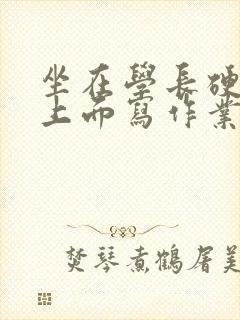 坐在學長硬
上而寫作業
焚琴煮鶴屠美